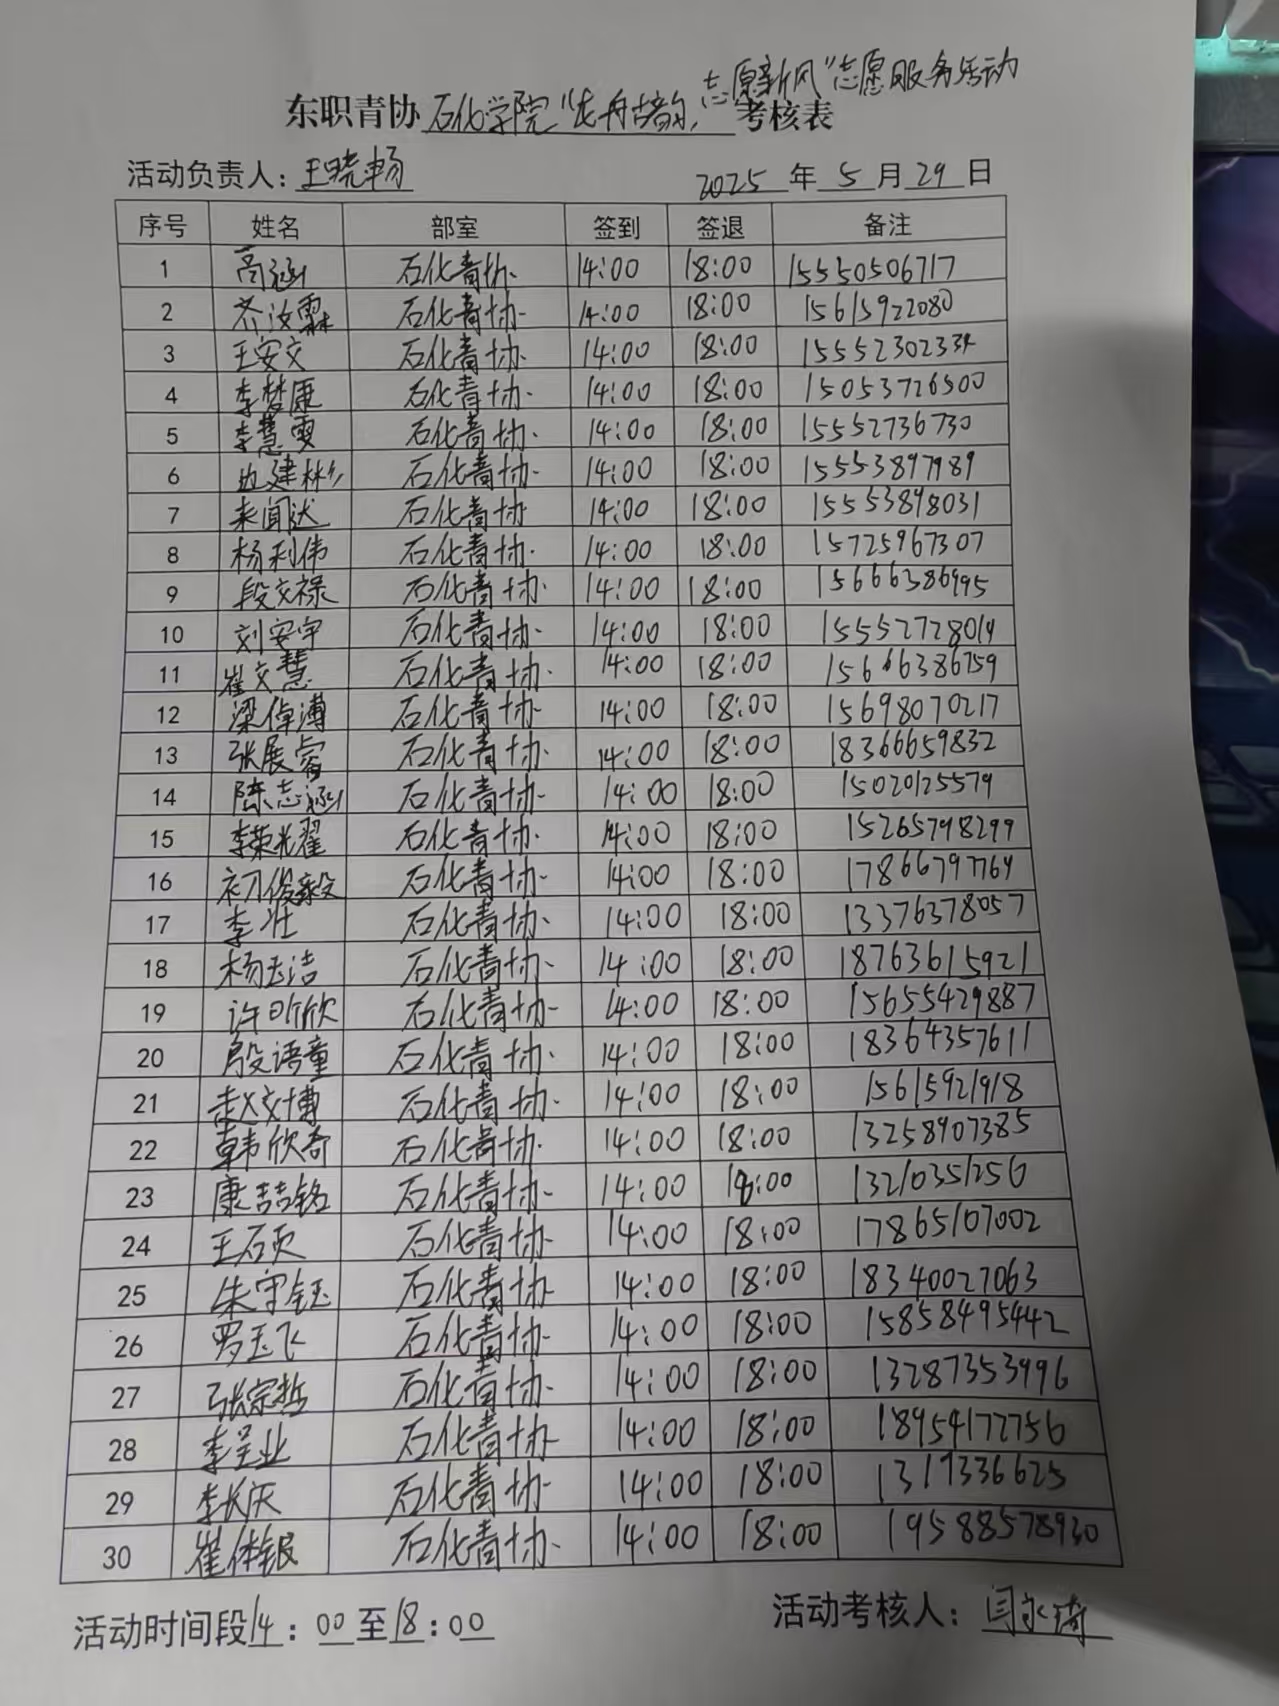 志愿新风"志愿服务活动
东职青协 石化学院"龙舟古韵, 考核表
活动负责人: 王晓畅 2025 年 5 月 29 日
序号 姓名 部室 签到 签退 备注
1 高涵 石化青协. 14:00 18:00 15550506717
2 齐汝霖 石化青协. 14:00 18:00 15615922080
3 王安文 石化青协. 14:00 18:00
4 李梦康 石化青协. 14:00 18:00 15053726500
5 李慧雯 石化青协. 14:00 18:00 15552736730
6 边建彬 石化青协. 14:00 18:00 15553897989
7 来闻达 石化青协 14:00 18:00 15553898031
8 杨利伟 石化青协. 14:00 18:00 15725967307
9 段文禄 石化青协. 14:00 18:00 15666386995
10 刘安宇 石化青协. 14:00 18:00 15552728019
11 崔文慧 石化青协. 14:00 18:00 15666386759
12 梁倬溥 石化青协. 14:00 18:00 15698070217
13 张展睿 石化青协. 14:00 18:00 18366659832
14 陈志涵 石化青协. 14:00 18:00 15020125579
15 李荣光耀 石化青协. 14:00 18:00 15265798299
16 初俊毅 石化青协. 14:00 18:00 17866797769
17 李壮 石化青协. 14:00 18:00 13376378057
18 杨玉洁 石化青协. 14:00 18:00 18763615921
19 许昕欣 石化青协. 14:00 18:00 15655429887
20 殷语童 石化青协. 14:00 18:00 18364357611
21 赵文博 石化青协. 14:00 18:00 15615921918
22 韩欣奇 石化青协. 14:00 18:00 13258907385
23 康喆铭 石化青协. 14:00 18:00 13210351256
24 王石页 石化青协. 14:00 18:00 17865107002
25 朱守钰 石化青协 14:00 18:00 18340027063
26 罗玉飞 石化青协. 14:00 18:00 15858495442
27 张宗哲 石化青协. 14:00 18:00 13287353996
28 李呈业 石化青协. 14:00 18:00 18954172756
29 李长庆 石化青协. 14:00 18:00 1319336625
30 崔体银 石化青协. 14:00 18:00 19588578930
活动时间段 14 : 00 至 18 : 00 活动考核人: 闫永琦